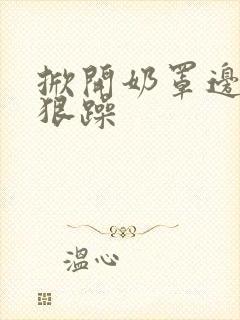 掀開奶罩邊
狠躁
溫心